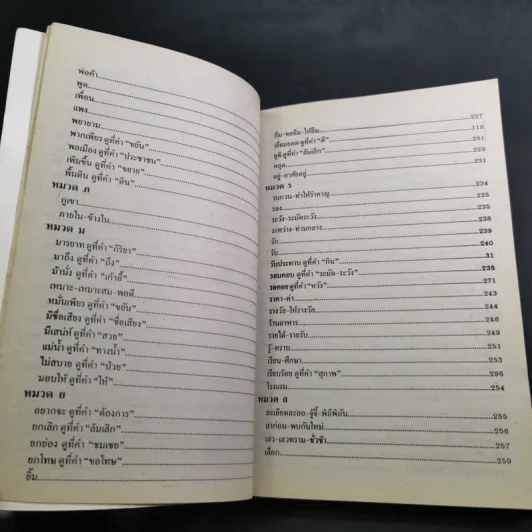 พ่อค้า
พูด
เพื่อน
แพง
พยายาม
พากเพียร ดูที่คำ "ขยัน"
พลเมือง ดูที่คำ "ประชาชน"
เพิ่มขึ้น ดูที่คำ "ขยาย"
พื้นดิน ดูที่คำ "ดิน"
หมวด ภ
ภูเขา
ภายใน-ข้างใน
หมวด ม
มารยาท ดูที่คำ "กิริยา"
มาถึง ดูที่คำ "ถึง"
ม้านั่ง ดูที่คำ "เก้าอี้"
เหมาะ-เหมาะสม-พอดี
หมั่นเพียร ดูที่คำ "ขยัน"
มีชื่อเสียง ดูที่คำ "ชื่อเสียง"
มีเสน่ห์ ดูที่คำ "สวย"
แม่น้ำ ดูที่คำ "ทางน้ำ"
ไม่สบาย ดูที่คำ "ป่วย"
มอบให้ ดูที่คำ "ให้"
หมวด ย
อยากจะ ดูที่คำ "ต้องการ"
ยกเลิก ดูที่คำ "ล้มเลิก"
ยกย่อง ดูที่คำ "ชมเชย"
ยกโทษ ดูที่คำ "ขอโทษ"
ยิ้ม
ยืม-ขอยืม-ให้ยืม 227
เยี่ยมยอด ดูที่คำ "ดี" 116
ยุติ ดูที่คำ "ล้มเลิก" 261
หยุด 229
อยู่-อาศัยอยู่ 231
หมวด ร
รบกวน-ทำให้รำคาญ 234
รอง 235
ระวัง-ระมัดระวัง 235
ระหว่าง-ท่ามกลาง 238
รัก 239
รับ 240
รับประทาน ดูที่คำ "กิน" 31
รอบคอบ ดูที่คำ "ระมัด-ระวัง" 235
รอคอย ดูที่คำ "หวัง" 271
ราคา-ค่า 243
รางวัล-ให้รางวัล 244
ร้านอาหาร 246
รายได้-รายรับ 249
รู้-ทราบ 251
เรียน-ศึกษา 253
เรียบร้อย ดูที่คำ "สุภาพ" 296
โรงแรม 254
หมวด ล
ละเอียดละออ-จู้จี้-พิถีพิถัน 255
ลาก่อน-พบกันใหม่ 256
เลว-เลวทราม-ชั่วช้า 257
เลือก 259